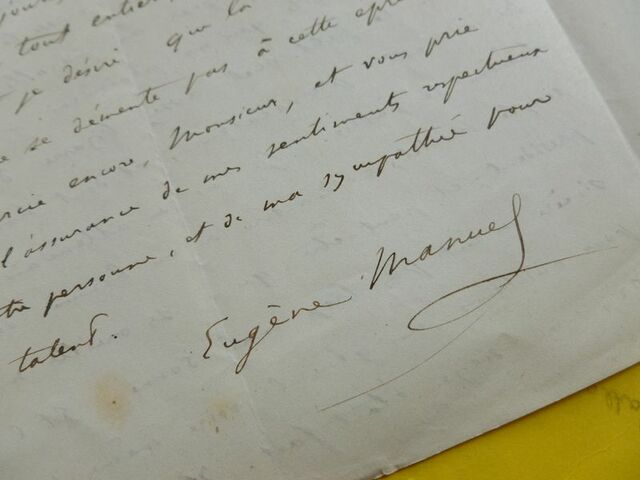 tout entier,
je désire que la
se démente pas à cette
encore, Monsieur, et vous prie
l'assurance de mes sentiments respectueux
personne, et de ma sympathie pour
talent.
Eugène Manuel